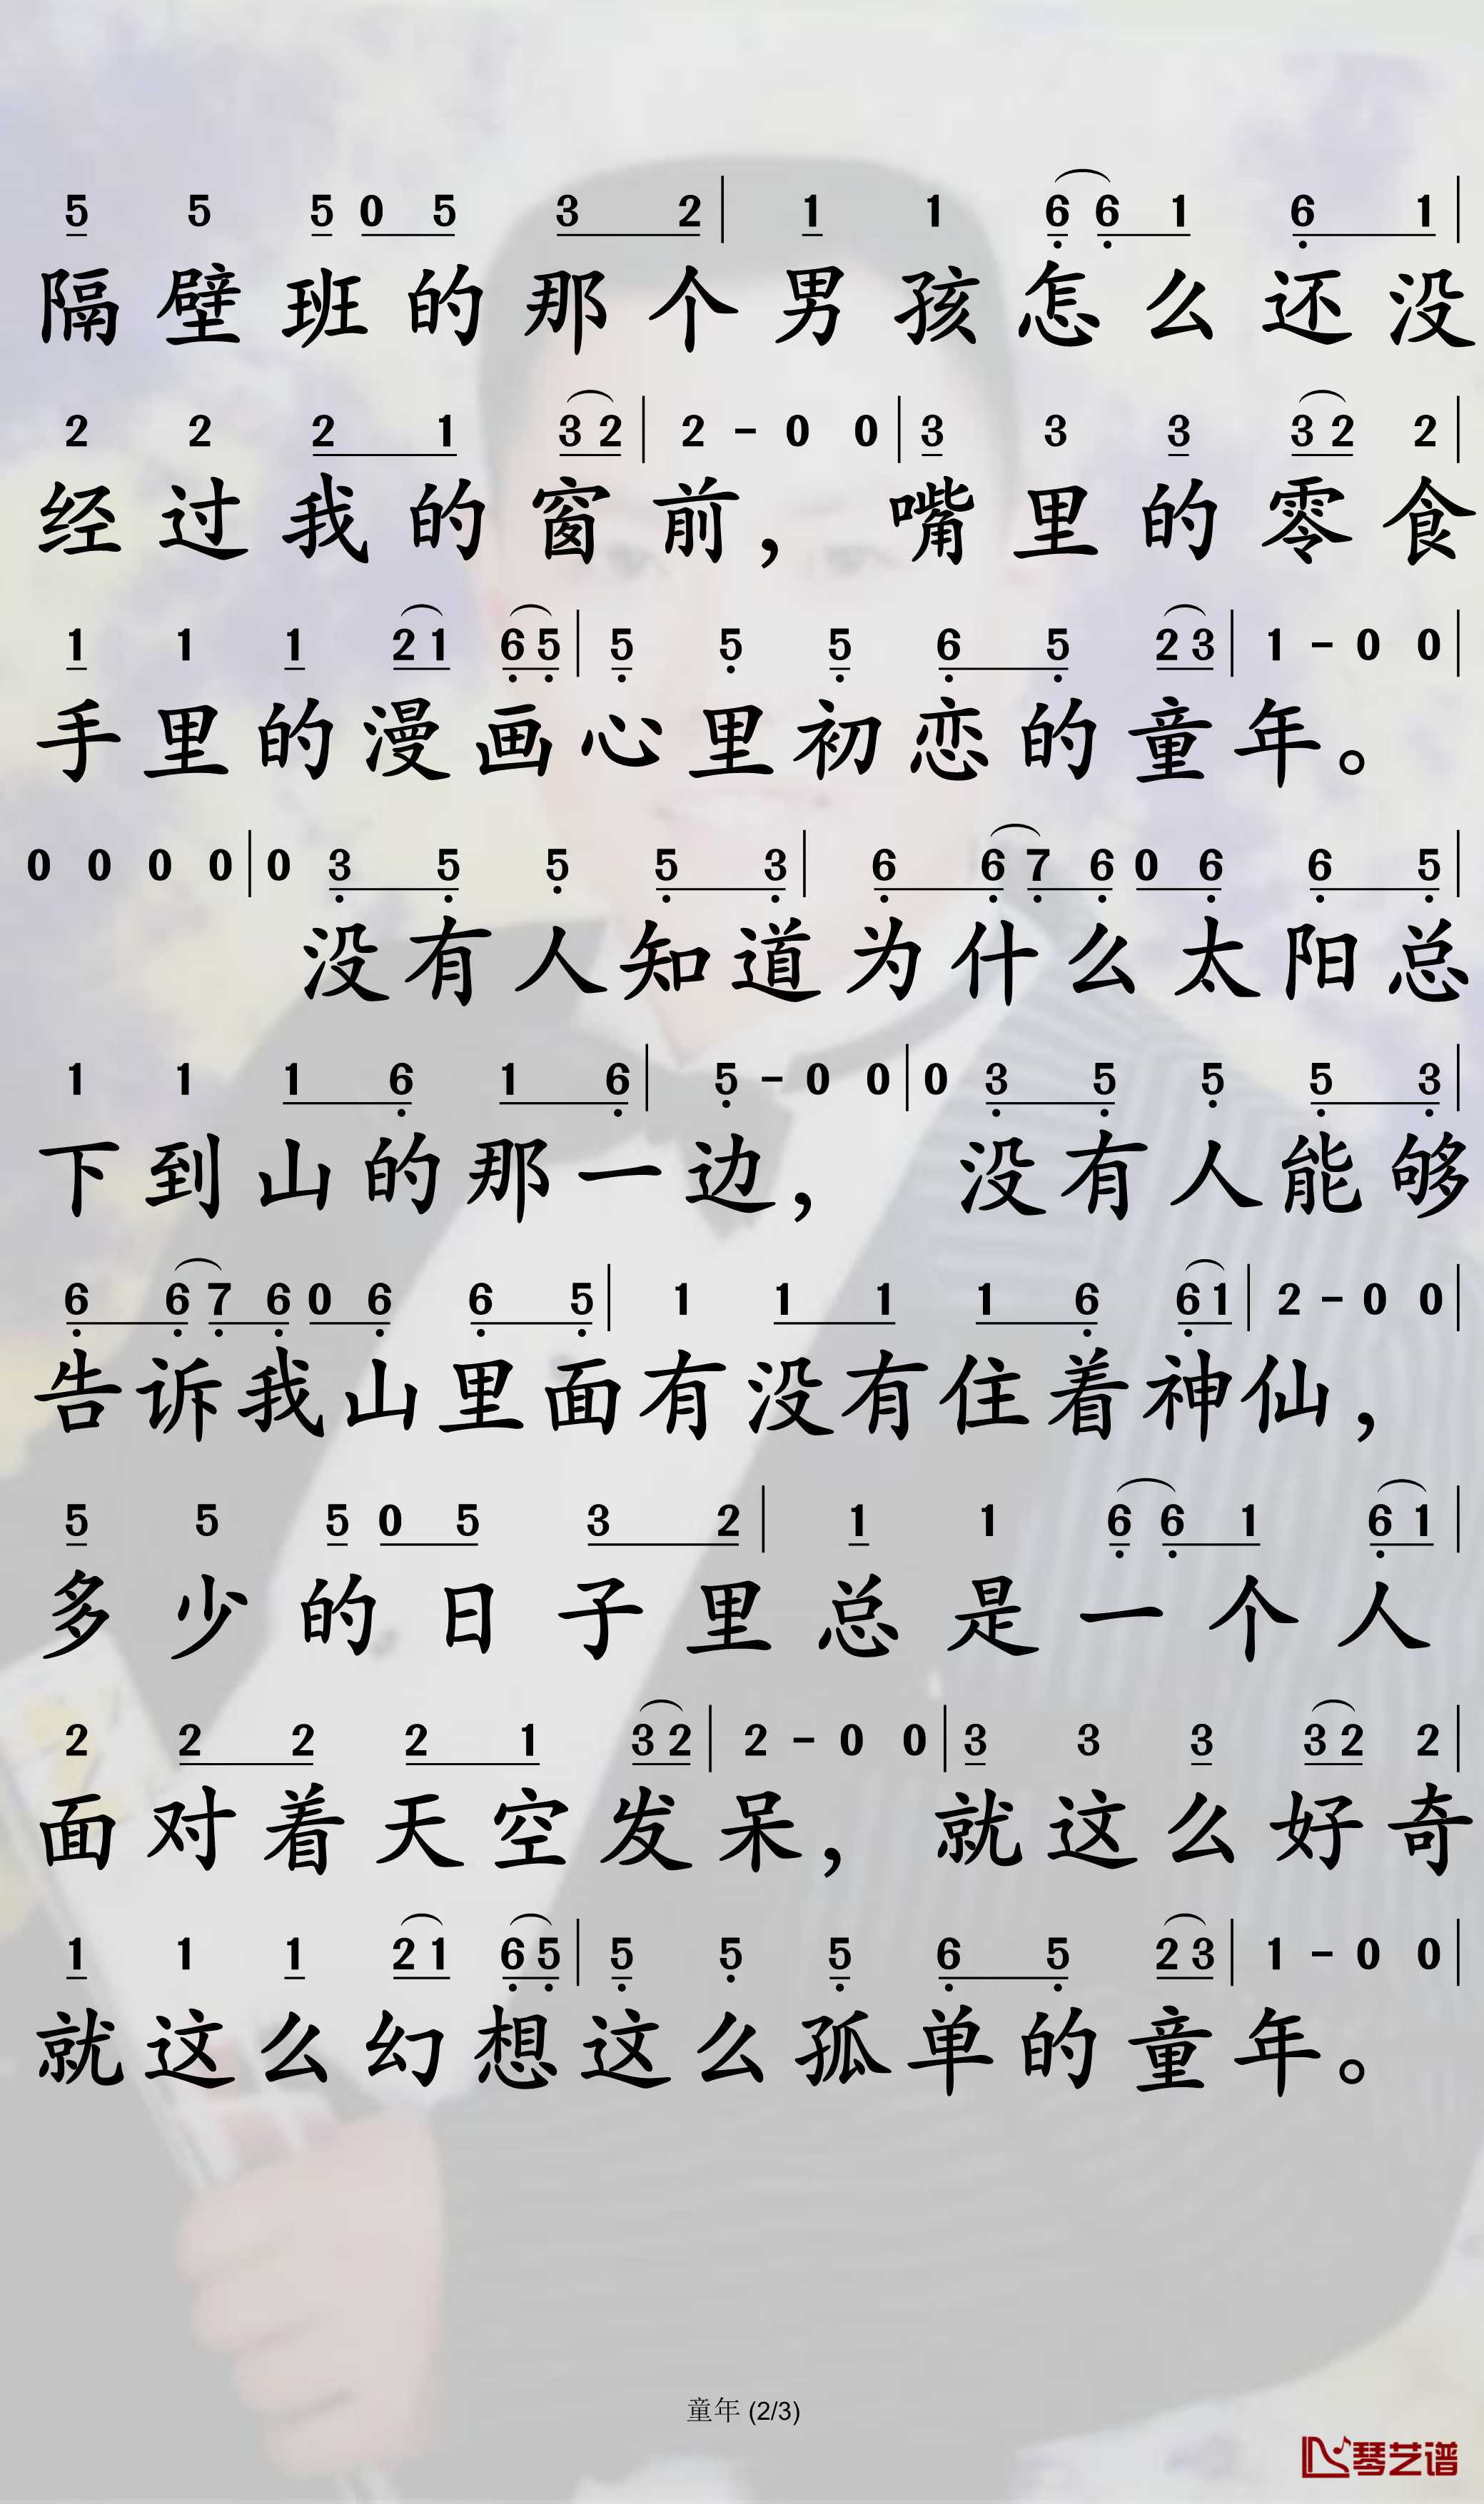 5 5 5 0 5 3 2 | 1 1 6 6 1 6 1 |
隔壁班的那个男孩怎么还没
2 2 2 1 3 2 | 2 - 0 0 | 3 3 3 3 2 2 |
经过我的窗前，嘴里的零食
1 1 1 2 1 6 5 | 5 5 5 6 5 2 3 | 1 - 0 0 |
手里的漫画心里初恋的童年。
0 0 0 0 | 0 3 5 5 5 3 | 6 6 7 6 0 6 6 5 |
没有人知道为什么太阳总
1 1 1 6 1 6 | 5 - 0 0 | 0 3 5 5 5 3 |
下到山的那一边，没有人能够
6 6 7 6 0 6 6 5 | 1 1 1 1 6 6 1 | 2 - 0 0 |
告诉我山里面有没有住着神仙，
5 5 5 0 5 3 2 | 1 1 6 6 1 6 1 |
多少的日子里总是一个人
2 2 2 2 1 3 2 | 2 - 0 0 | 3 3 3 3 2 2 |
面对着天空发呆，就这么好奇
1 1 1 2 1 6 5 | 5 5 5 6 5 2 3 | 1 - 0 0 |
就这么幻想这么孤单的童年。
童年 (2/3)
琴艺谱